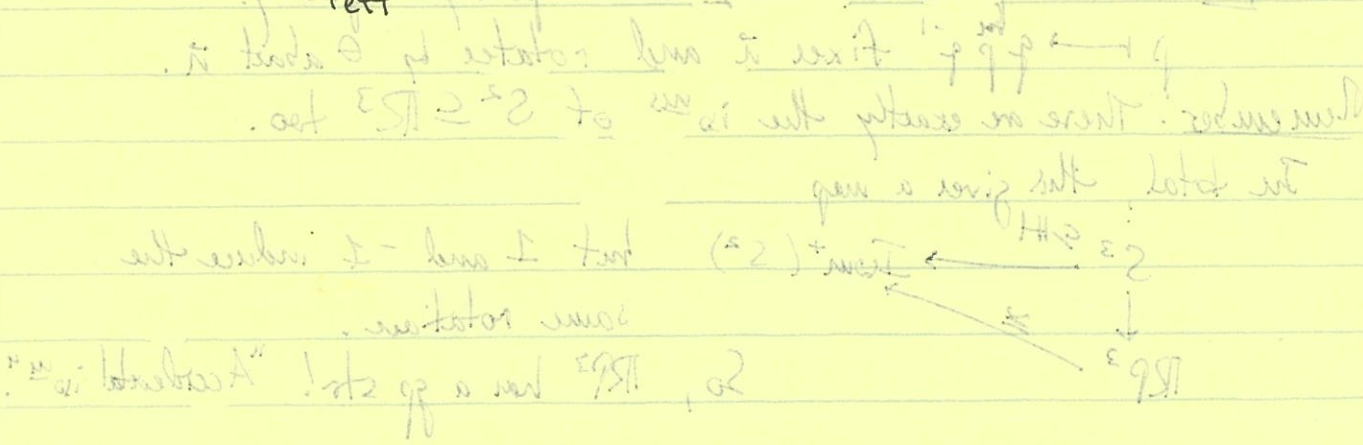 left
p ↦ qpq⁻¹ fixes û and rotates by θ about û.
Remember: These are exactly the isoms of S² ⊆ ℝ³ too.
In total, this gives a map
S³ → Isom⁺(S²) but 1 and -1 induce the
↓ ≅ same rotation.
ℝP³ So, ℝP³ has a gp str! "Accidental isom".